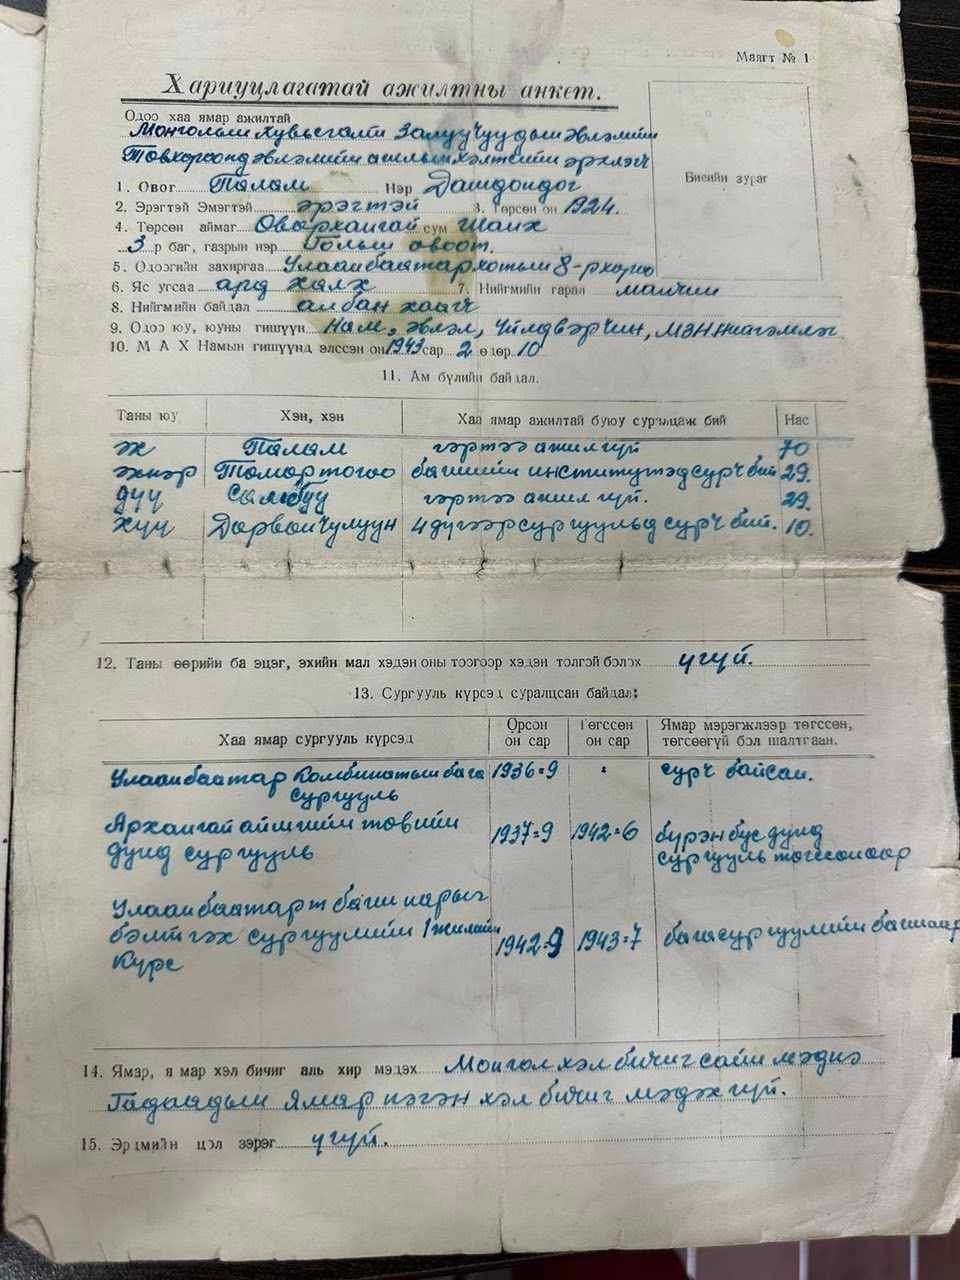 Маягт № 1
Хариуцлагатай ажилтны анкет.
Одоо хаа ямар ажилтай
Монголын хувьсгалт Залуучуудын эвлэлийн
Төвхороонд эвлэлийн ажлын хэлтсийн эрхлэгч
Биеийн зураг
1. Овог Палам Нэр Дашдондог
2. Эрэгтэй Эмэгтэй эрэгтэй 3. Төрсөн он 1924.
4. Төрсөн аймаг Өвөрхангай сум
3 р баг, газрын нэр овоот.
5. Одоогийн захиргаа Улаанбаатар хотын 8-р хороо
6. Яс угсаа ард халх 7. Нийгмийн гарал малчин
8. Нийгмийн байдал албан хаагч
9. Одоо юу, юуны гишүүн Нам, эвлэл, Үйлдвэрчин, МЗН нийгэмлэг
10. М А Х Намын гишүүнд элссэн он 1943 сар 2 өдөр 10
11. Ам бүлийн байдал.
Таны юу Хэн, хэн Хаа ямар ажилтай буюу суралцаж бий Нас
эх Палам гэртээ ажилгүй 70
эхнэр Төмөртогоо багшийн институтэд сурч бий 29.
дүү Самбуу гэртээ ажилгүй. 29.
хүү Дөрвөнчулуун 4 дүгээр сургуульд сурч бий. 10.
12. Таны өөрийн ба эцэг, эхийн мал хэдэн оны тоогоор хэдэн толгой бэлэх үгүй.
13. Сургууль курсэд суралцсан байдал:
Хаа ямар сургууль курсэд Орсон он сар Төгссөн он сар Ямар мэрэгжлээр төгссөн, төгсөөгүй бол шалтгаан.
Улаанбаатар Комбинатын бага сургууль 1936=9 " сурч байсан.
Архангай аймгийн төвийн дунд сургууль 1937=9 1942=6 бүрэн бус дунд сургууль төгссөнөөр
Улаанбаатарт багш нарыг бэлтгэх сургуулийн 1 жилийн курс 1942=9 1943=7 бага сургуулийн багшаар
14. Ямар, я мар хэл бичиг аль хир мэдэх Монгол хэл бичиг сайн мэднэ
Гадаадын ямар нэгэн хэл бичиг мэдэхгүй.
15. Эрдмийн цэл зэрэг үгүй.